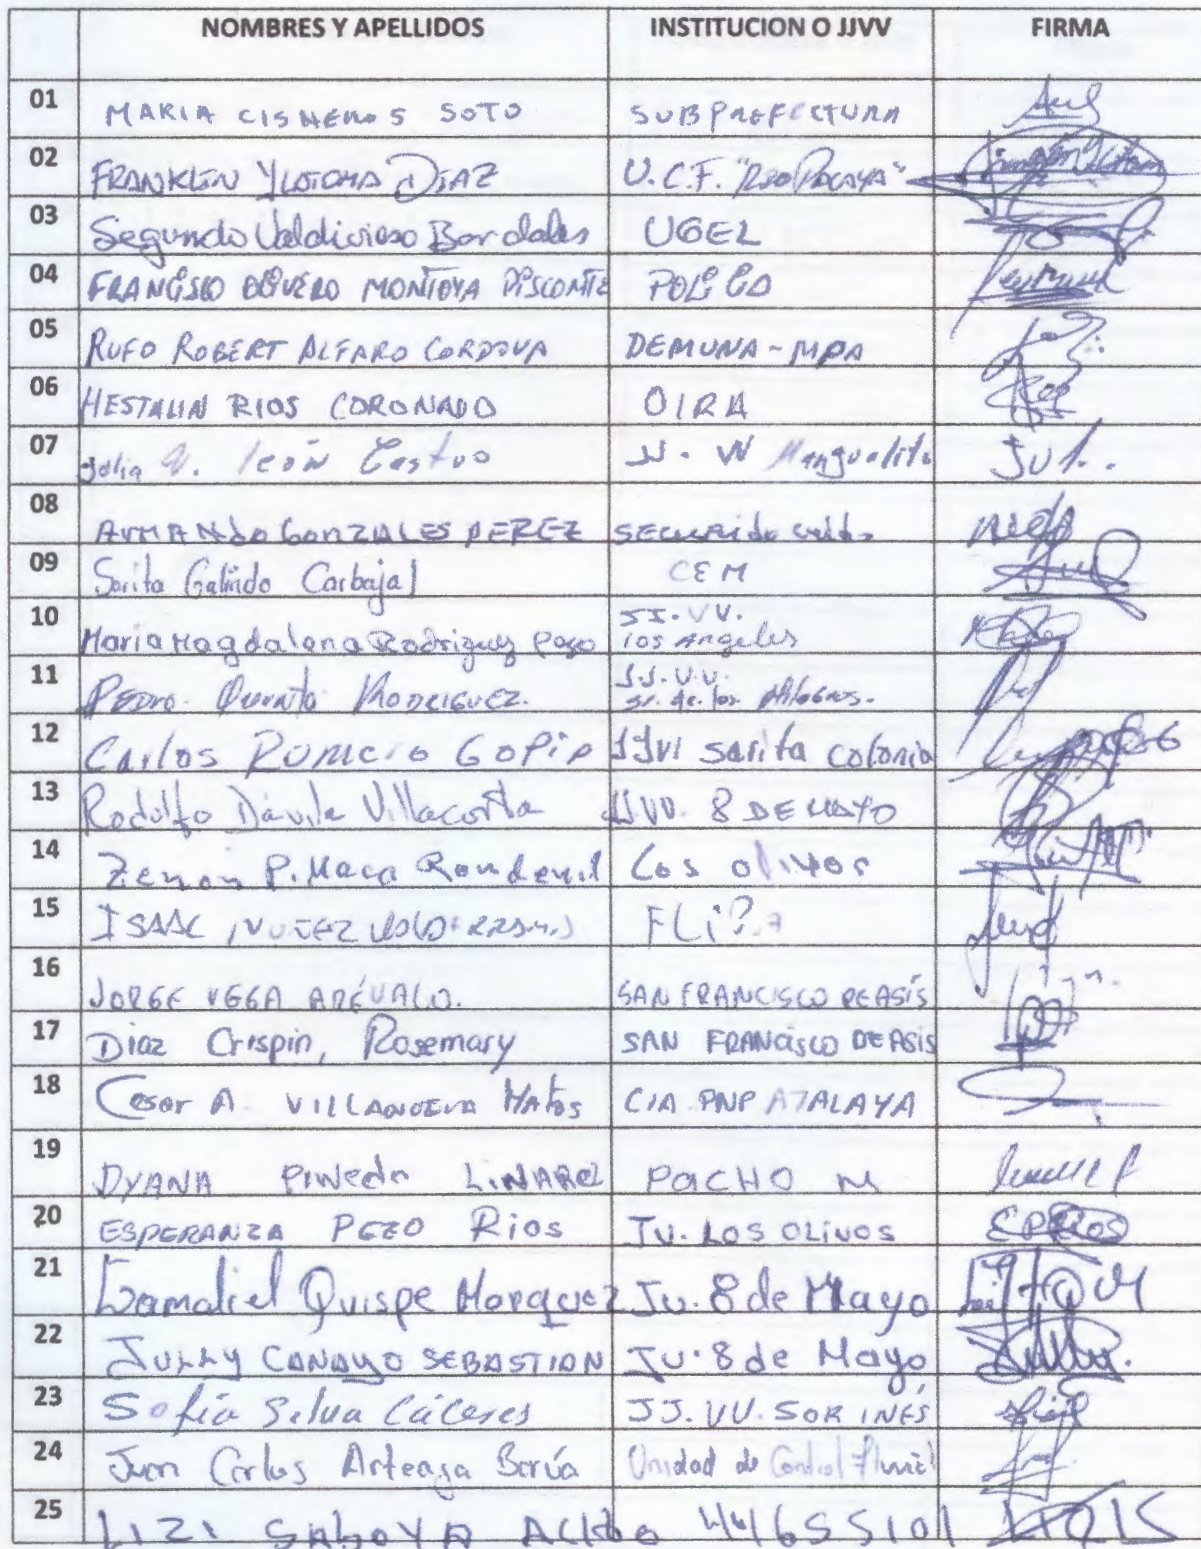 NOMBRES Y APELLIDOS INSTITUCION O JJVV FIRMA
01 MARIA CISNEROS SOTO SUBPREFECTURA
02 FRANKLIN DIAZ U.C.F.
03 Segundo Valdivieso Bardales UGEL
04 MONTOYA
05 RUFO ROBERT ALFARO CORDOVA DEMUNA-MPA
06 HESTALIN RIOS CORONADO OIRA
07 Julia león Castro Mangualito
08 ARMANdo GONZALES PEREZ
09 Sarita Galindo Carbajal CEM
10 Maria Magdalena Rodriguez JJ.VV.
los Angeles
11 PEDRO RODRIGUEZ. JJ.VV.
Sr. de los Milagros.
12 Carlos ROMERO Sarita Colonia
13 Rodolfo Dávila Villacorta JJVV. 8 DE MAYO
14 Zenon P. Los olivos
15 ISAAC
16 JORGE VEGA ARÉVALO. SAN FRANCISCO DE ASÍS
17 Diaz Crispin, Rosemary SAN FRANCISCO DE ASIS
18 Cesar A. VILLANUEVA MATOS CIA PNP ATALAYA
19 DYANA Pinedo LINARES PACHO
20 ESPERANZA PEZO Rios JV. LOS OLIVOS
21 Gamaliel Quispe Marquez Jv. 8 de Mayo
22 JULLY CANAYO SEBASTIAN JV. 8 de Mayo
23 Sofía Silva Cáceres JJ.VV. SOR INÉS
24 Juan Carlos Arteaga Unidad de Control Fluvial
25 LIZI SABOYA 44655101